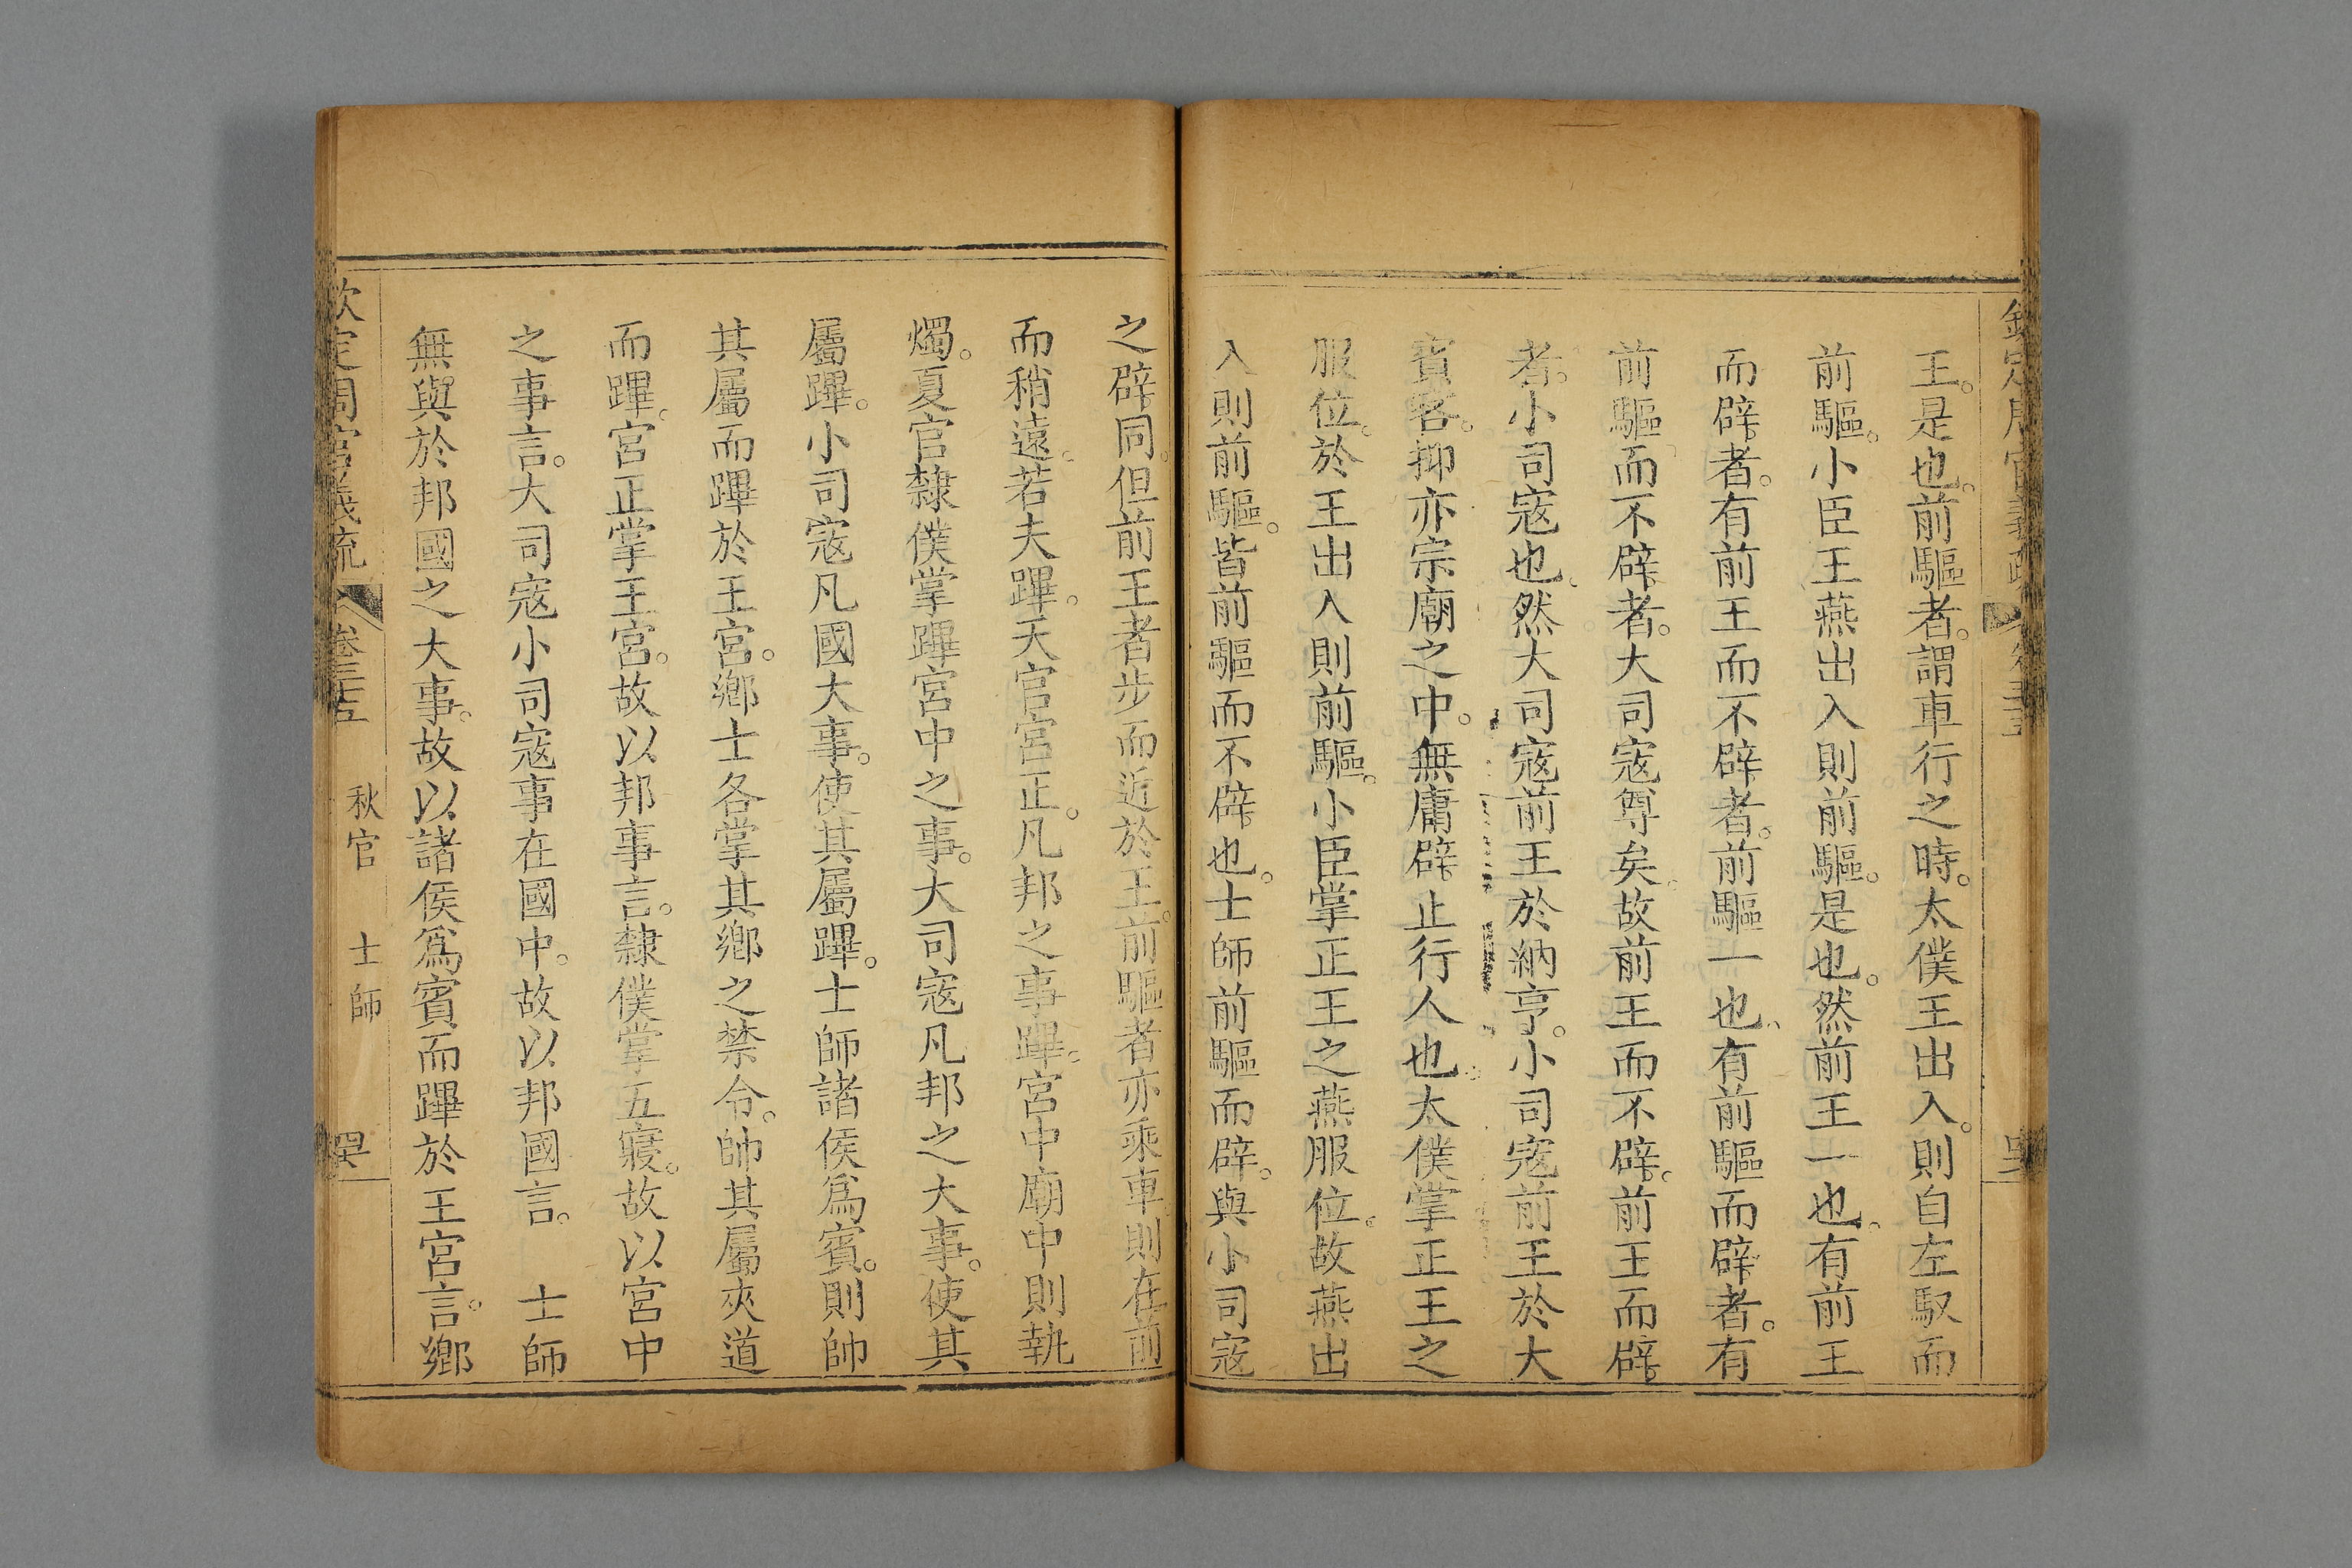 王。是也。前驅者。謂車行之時。太僕王出入。則自左馭而
前驅。小臣王燕出入則前驅。是也。然前王一也。有前王
而辟者。有前王而不辟者。前驅一也。有前驅而辟者。有
前驅而不辟者。大司寇尊矣。故前王而不辟。前王而辟
者。小司寇也。然大司寇前王於納亨。小司寇前王於大
賓客。抑亦宗廟之中。無庸辟止行人也。太僕掌正王之
服位。於王出入則前驅。小臣掌正王之燕服位。故燕出
入則前驅。皆前驅而不辟也。士師前驅而辟。與小司寇
之辟同。但前王者步而近於王前。前驅者亦乘車。則在前
而稍遠。若夫蹕。天官宮正。凡邦之事蹕。宮中廟中則執
燭。夏官隸僕掌蹕宮中之事。大司寇凡邦之大事。使其
屬蹕。小司寇凡國大事。使其屬蹕。士師諸侯爲賓。則帥
其屬而蹕於王宮。鄉士各掌其鄉之禁令。帥其屬夾道
而蹕。宮正掌王宮。故以邦事言。隸僕掌五寢。故以宮中
之事言。大司寇小司寇事在國中。故以邦國言。 士師
無與於邦國之大事。故以諸侯爲賓而蹕於王宮言。鄉
欽定周官義疏 卷三十五 秋官 士師